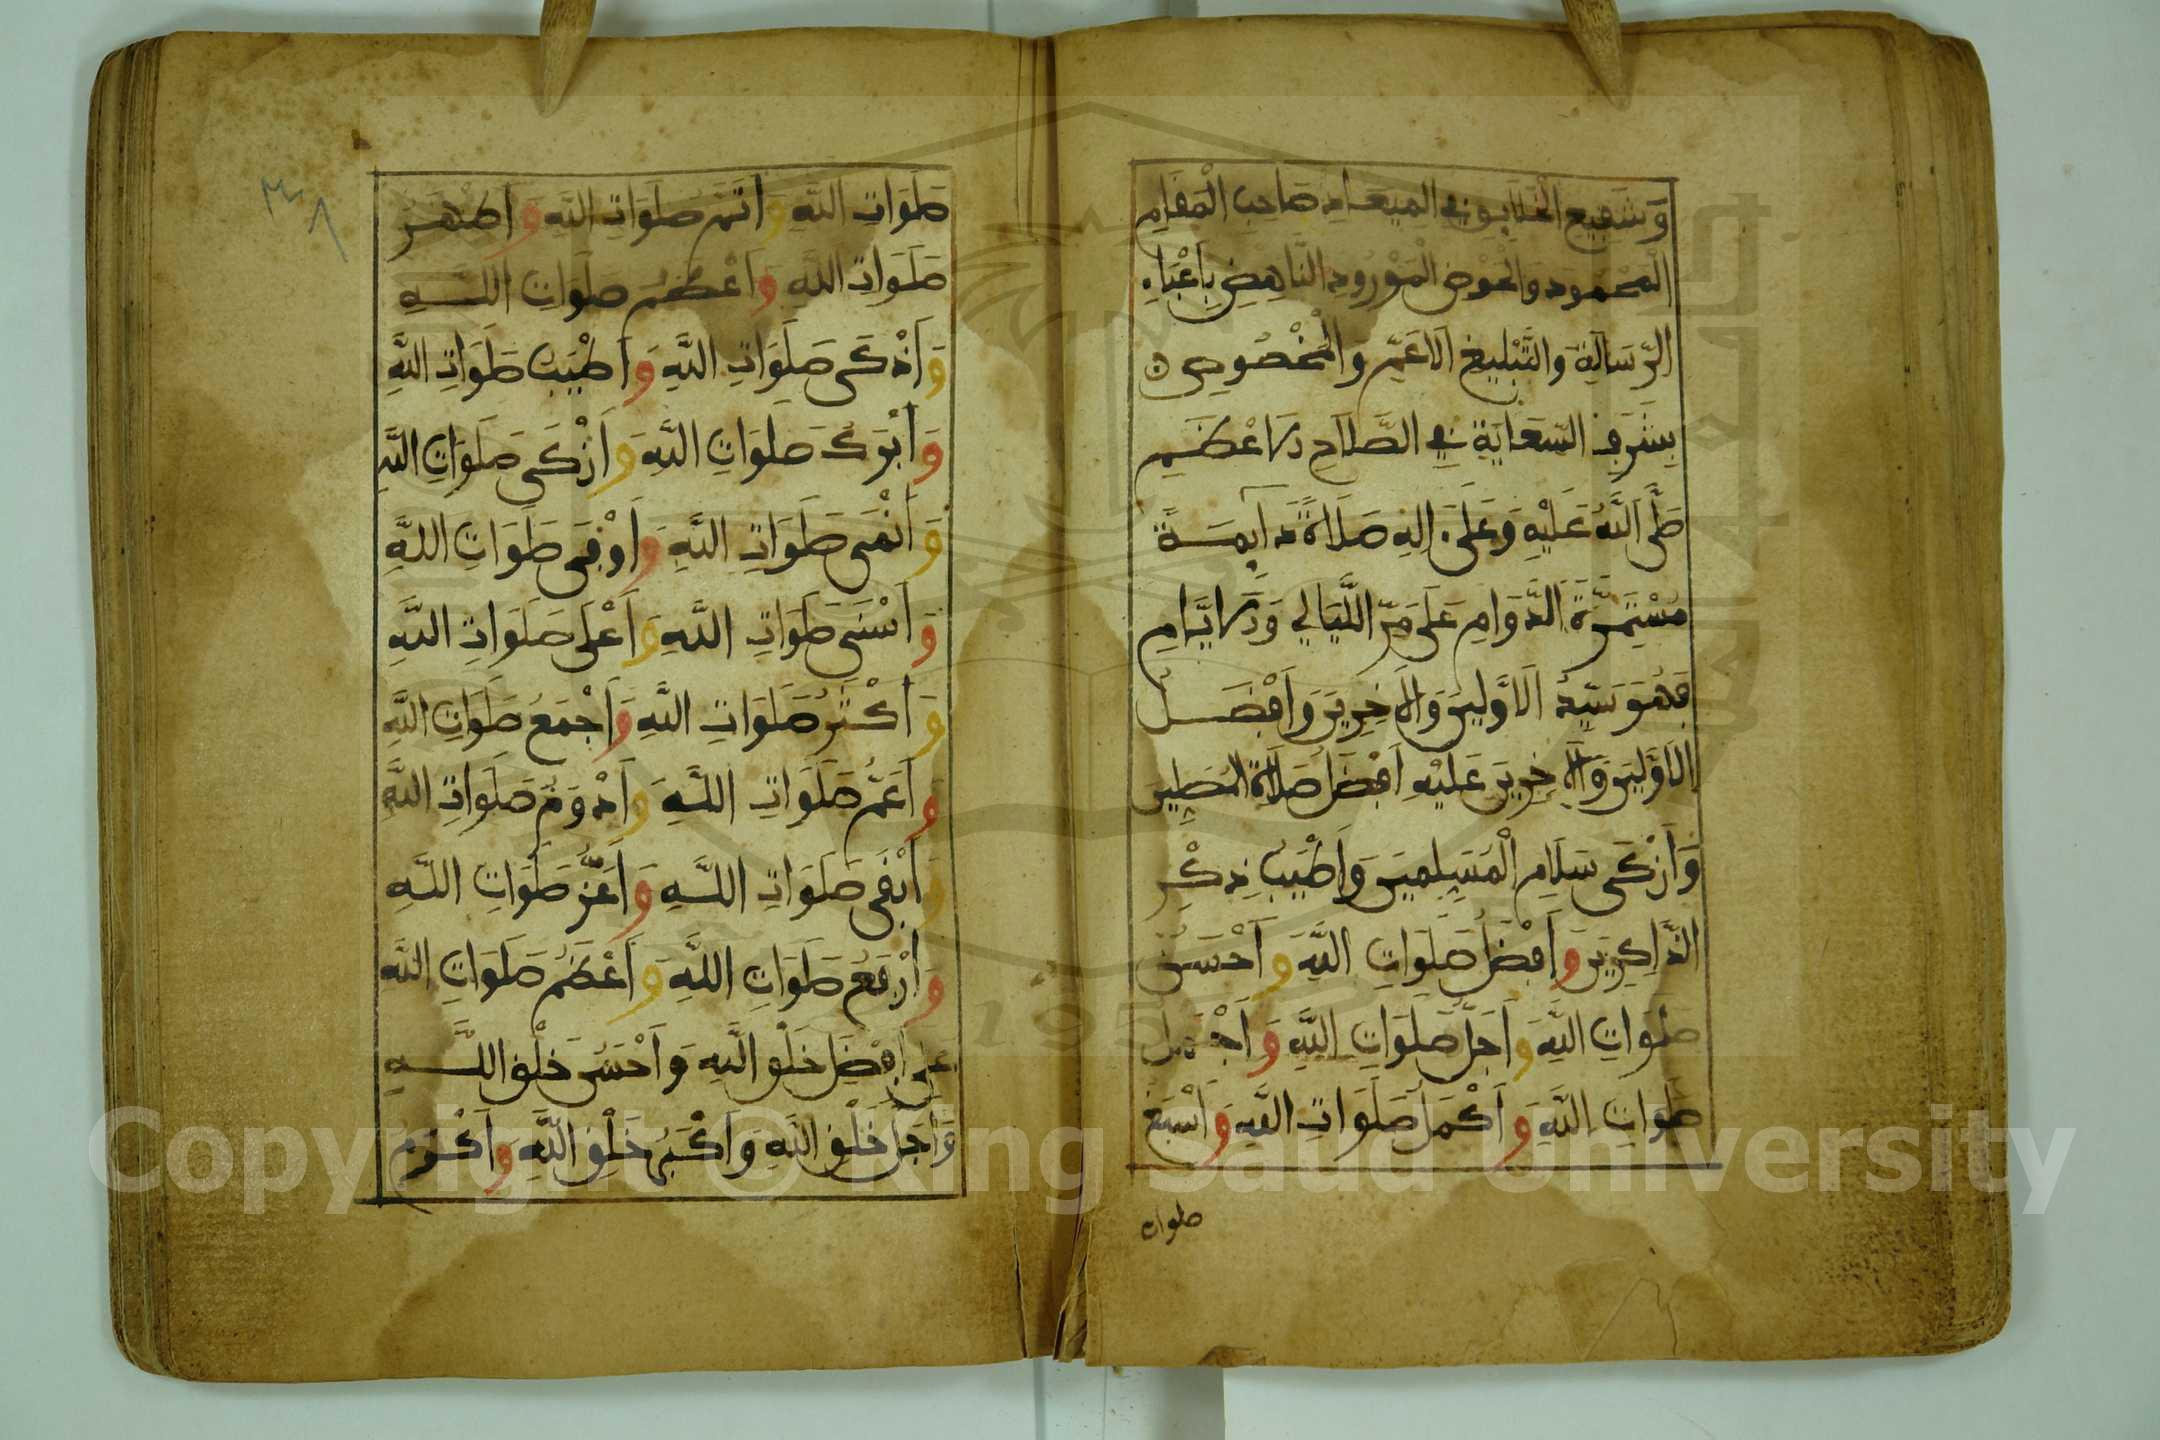 وَشَفِيعِ الْخَلَائِقِ فِي الْمِيعَادِ صَاحِبِ الْمَقَامِ
الْمَحْمُودِ وَالْحَوْضِ الْمَوْرُودِ النَّاهِضِ بِأَعْبَاءِ
الرِّسَالَةِ وَالتَّبْلِيغِ الْأَعَمِّ وَالْمَخْصُوصِ
بِشَرَفِ السِّعَايَةِ فِي الصَّلَاحِ الْأَعْظَمِ
صَلَّى اللَّهُ عَلَيْهِ وَعَلَى آلِهِ صَلَاةً دَآيِمَةً
مُسْتَمِرَّةَ الدَّوَامِ عَلَى مَرِّ اللَّيَالِي وَالْأَيَّامِ
فَهُوَ سَيِّدُ الْأَوَّلِينَ وَالْآخِرِينَ وَأَفْضَلُ
الْأَوَّلِينَ وَالْآخِرِينَ عَلَيْهِ أَفْضَلُ صَلَاةِ الْمُصَلِّينَ
وَأَزْكَى سَلَامِ الْمُسَلِّمِينَ وَأَطْيَبُ ذِكْرِ
الذَّاكِرِينَ وَأَفْضَلُ صَلَوَاتِ اللَّهِ وَأَحْسَنُ
صَلَوَاتِ اللَّهِ وَأَجَلُّ صَلَوَاتِ اللَّهِ وَأَجْمَلُ
صَلَوَاتِ اللَّهِ وَأَكْمَلُ صَلَوَاتِ اللَّهِ وَأَسْبَغُ
صلوات
٣٨
صَلَوَاتِ اللَّهِ وَأَتَمُّ صَلَوَاتِ اللَّهِ وَأَظْهَرُ
صَلَوَاتِ اللَّهِ وَأَعْظَمُ صَلَوَاتِ اللَّهِ
وَأَذْكَى صَلَوَاتِ اللَّهِ وَأَطْيَبُ صَلَوَاتِ اللَّهِ
وَأَبْرَكُ صَلَوَاتِ اللَّهِ وَأَزْكَى صَلَوَاتِ اللَّهِ
وَأَنْمَى صَلَوَاتِ اللَّهِ وَأَوْفَى صَلَوَاتِ اللَّهِ
وَأَسْنَى صَلَوَاتِ اللَّهِ وَأَعْلَى صَلَوَاتِ اللَّهِ
وَأَكْثَرُ صَلَوَاتِ اللَّهِ وَأَجْمَعُ صَلَوَاتِ اللَّهِ
وَأَعَمُّ صَلَوَاتِ اللَّهِ وَأَدْوَمُ صَلَوَاتِ اللَّهِ
وَأَبْقَى صَلَوَاتِ اللَّهِ وَأَعَزُّ صَلَوَاتِ اللَّهِ
وَأَرْفَعُ صَلَوَاتِ اللَّهِ وَأَعْظَمُ صَلَوَاتِ اللَّهِ
عَلَى أَفْضَلِ خَلْقِ اللَّهِ وَأَحْسَنِ خَلْقِ اللَّهِ
وَأَجَلِّ خَلْقِ اللَّهِ وَأَكْبَرِ خَلْقِ اللَّهِ وَأَكْرَمِ
Copyright © King Saud University
1957